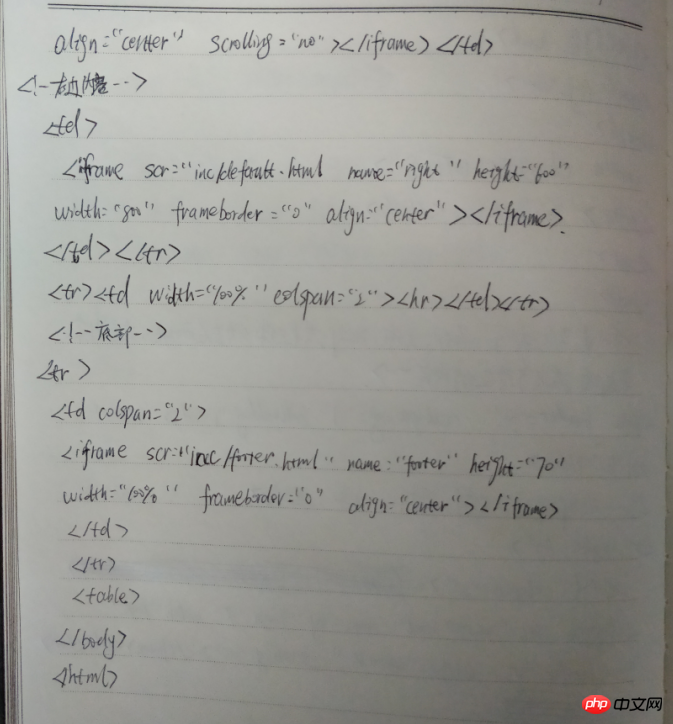 align="center" scrolling="no"></iframe></td>
<!--右边内容-->
<td>
<iframe scr="inc/defaralt.html name="right" height="600"
width="800" frameborder="0" align="center"></iframe>.
</td></tr>
<tr><td width="100%" colspan="2"><hr></td><tr>
<!--底部-->
<tr>
<td colspan="2">
<iframe scr="inc/forter.html" name="forter" height="70"
width="100%" frameborder="0" align="center"></iframe>
</td>
</tr>
<table>
</body>
<html>
php 中文网